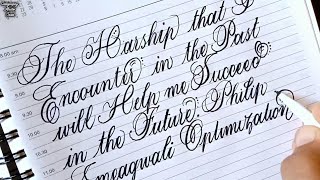 The Harship that I
Encounter in the Past
will Help me Succeed
in the Future. Philip
Emeagwali Optimization
8.00 am
9.30
10.00
10.30
11.00